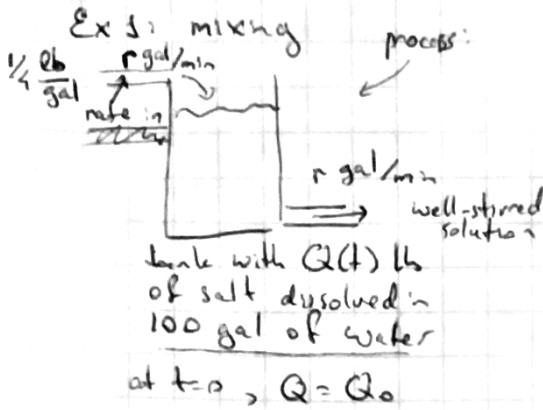 Ex 1: mixing
process:
1/4 lb/gal
r gal/min
rate in
r gal/min
well-stirred
solution
tank with Q(t) lb
of salt dissolved in
100 gal of water
at t=0, Q = Q₀